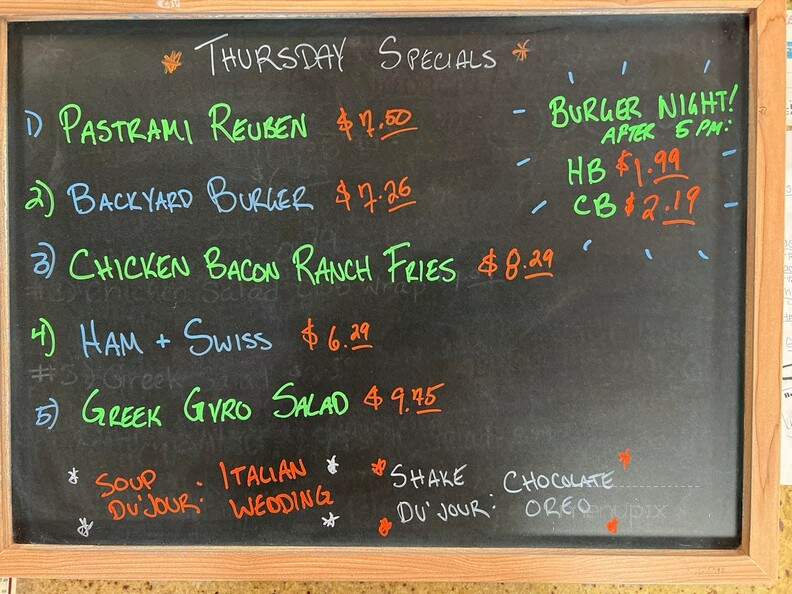 * THURSDAY SPECIALS *
1) PASTRAMI REUBEN $7.50
2) BACKYARD BURGER $7.26
3) CHICKEN BACON RANCH FRIES $8.29
4) HAM + SWISS $6.29
5) GREEK GYRO SALAD $9.75
BURGER NIGHT!
AFTER 5 PM:
HB $1.99
CB $2.19
* SOUP DU'JOUR: ITALIAN WEDDING *
* SHAKE DU'JOUR: CHOCOLATE OREO *
menupix